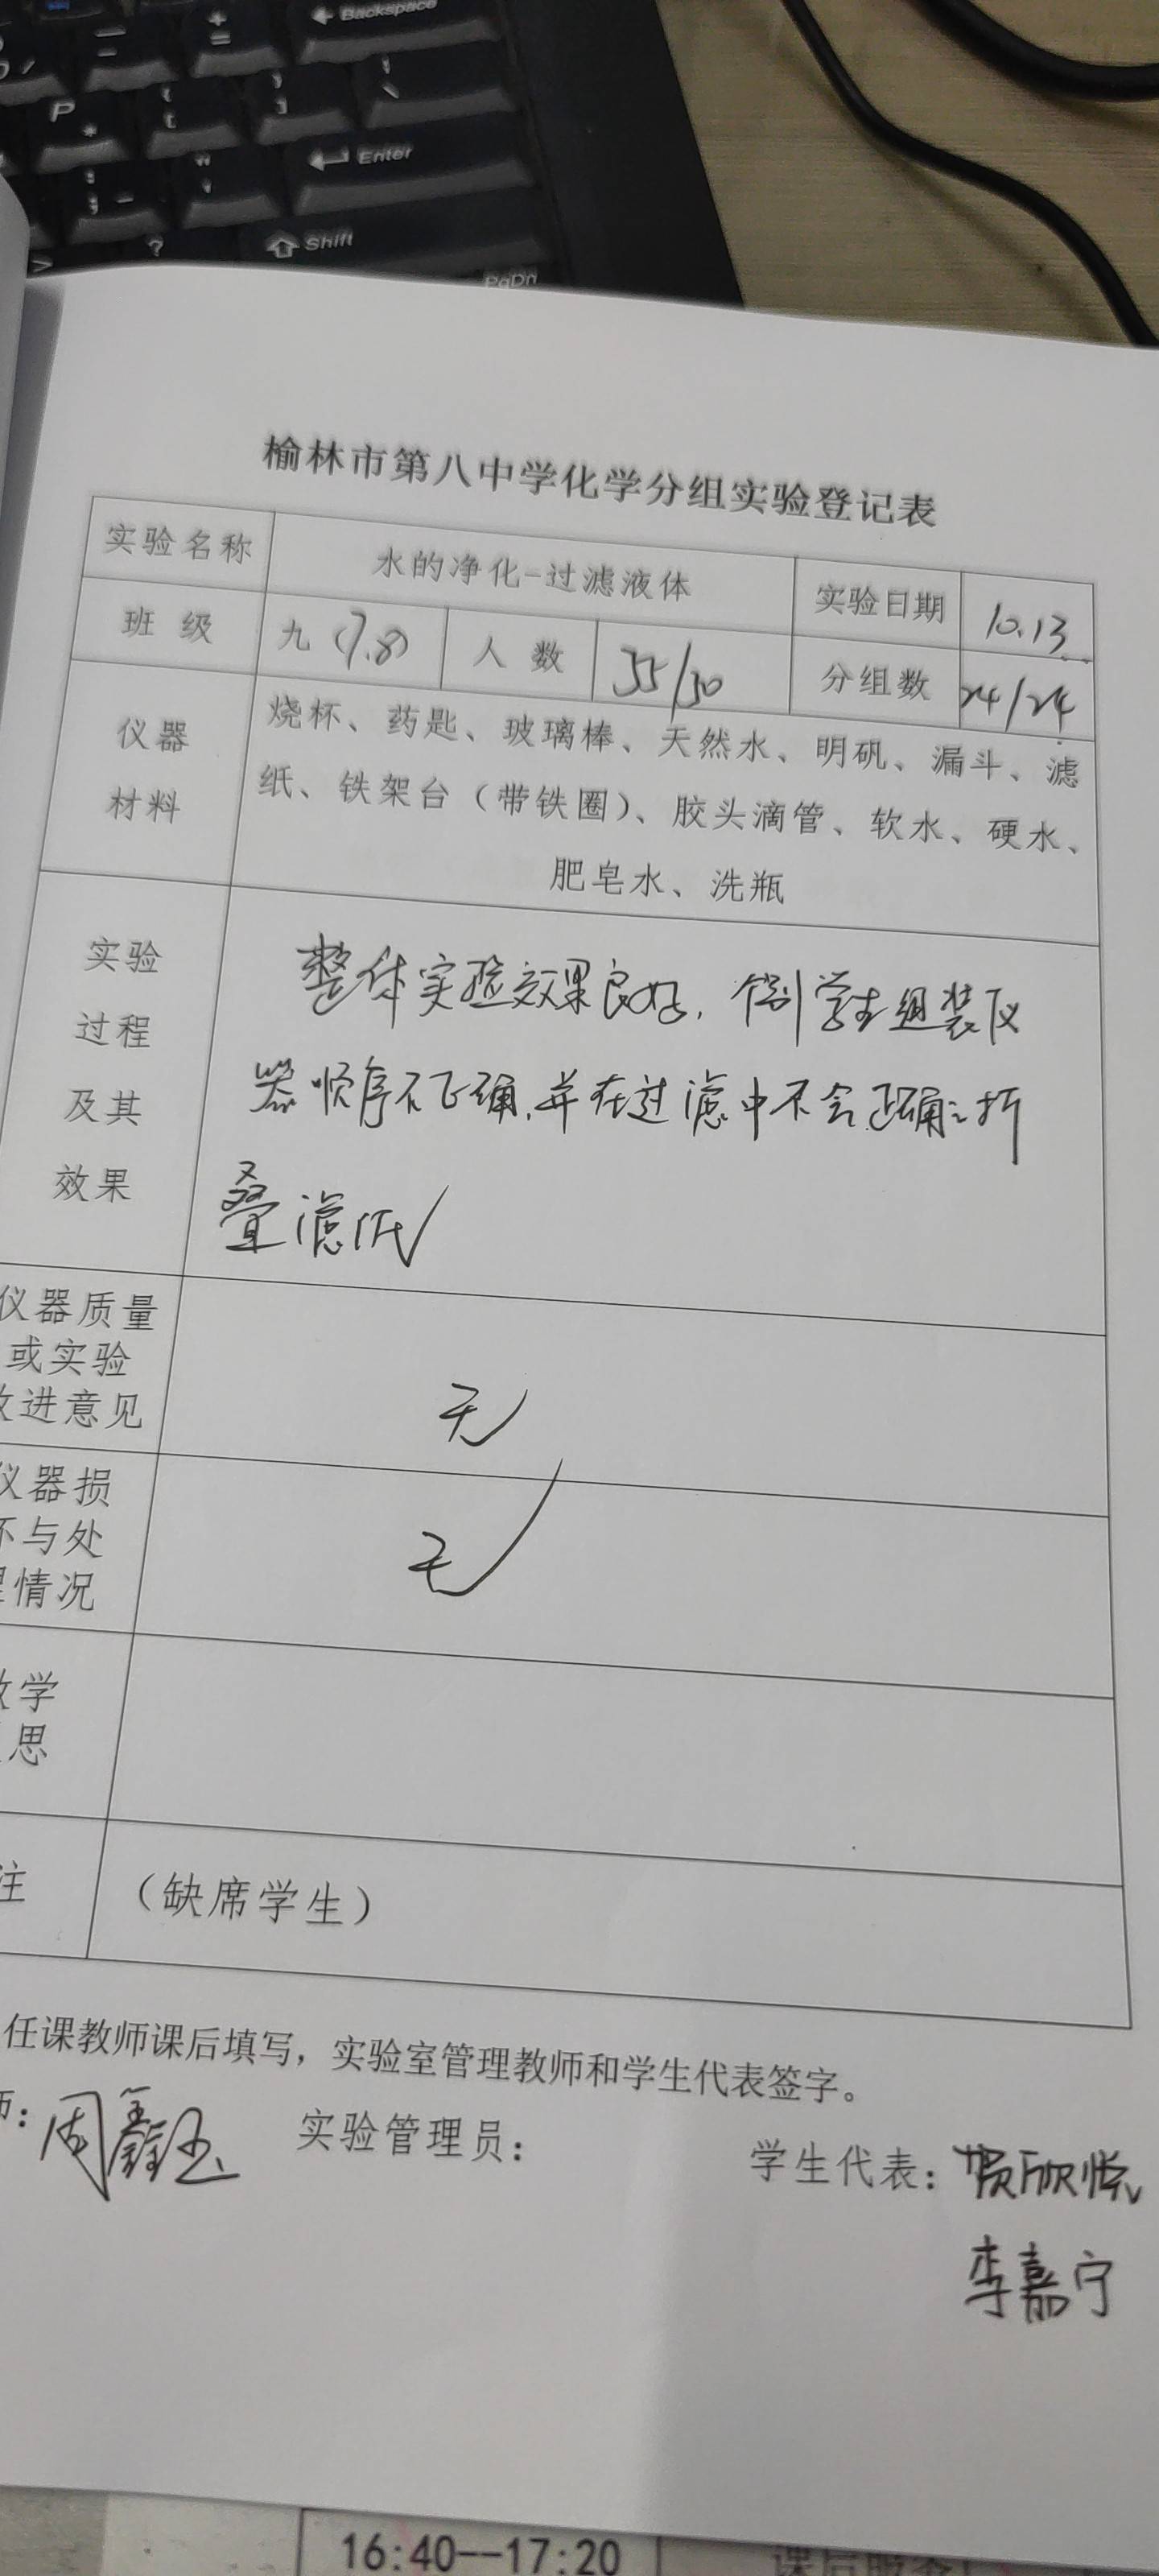 Backspace
P
Enter
Shift
PgDn
榆林市第八中学化学分组实验登记表
实验名称 水的净化-过滤液体 实验日期 10.13
班 级 九(7.8) 人 数 55/50 分组数 24/24
仪器
材料
烧杯、药匙、玻璃棒、天然水、明矾、漏斗、滤
纸、铁架台（带铁圈）、胶头滴管、软水、硬水、
肥皂水、洗瓶
实验
过程
及其
效果
整体实验效果良好, 个别学生组装仪
器顺序不正确,并在过滤中不会正确折
叠滤纸
仪器质量
或实验
改进意见
无
仪器损
坏与处
理情况
无
教学
思
注 （缺席学生）
任课教师课后填写，实验室管理教师和学生代表签字。
师：周鑫钰 实验管理员： 学生代表：贺欣悦
李嘉宁
16:40--17:20 课后服务